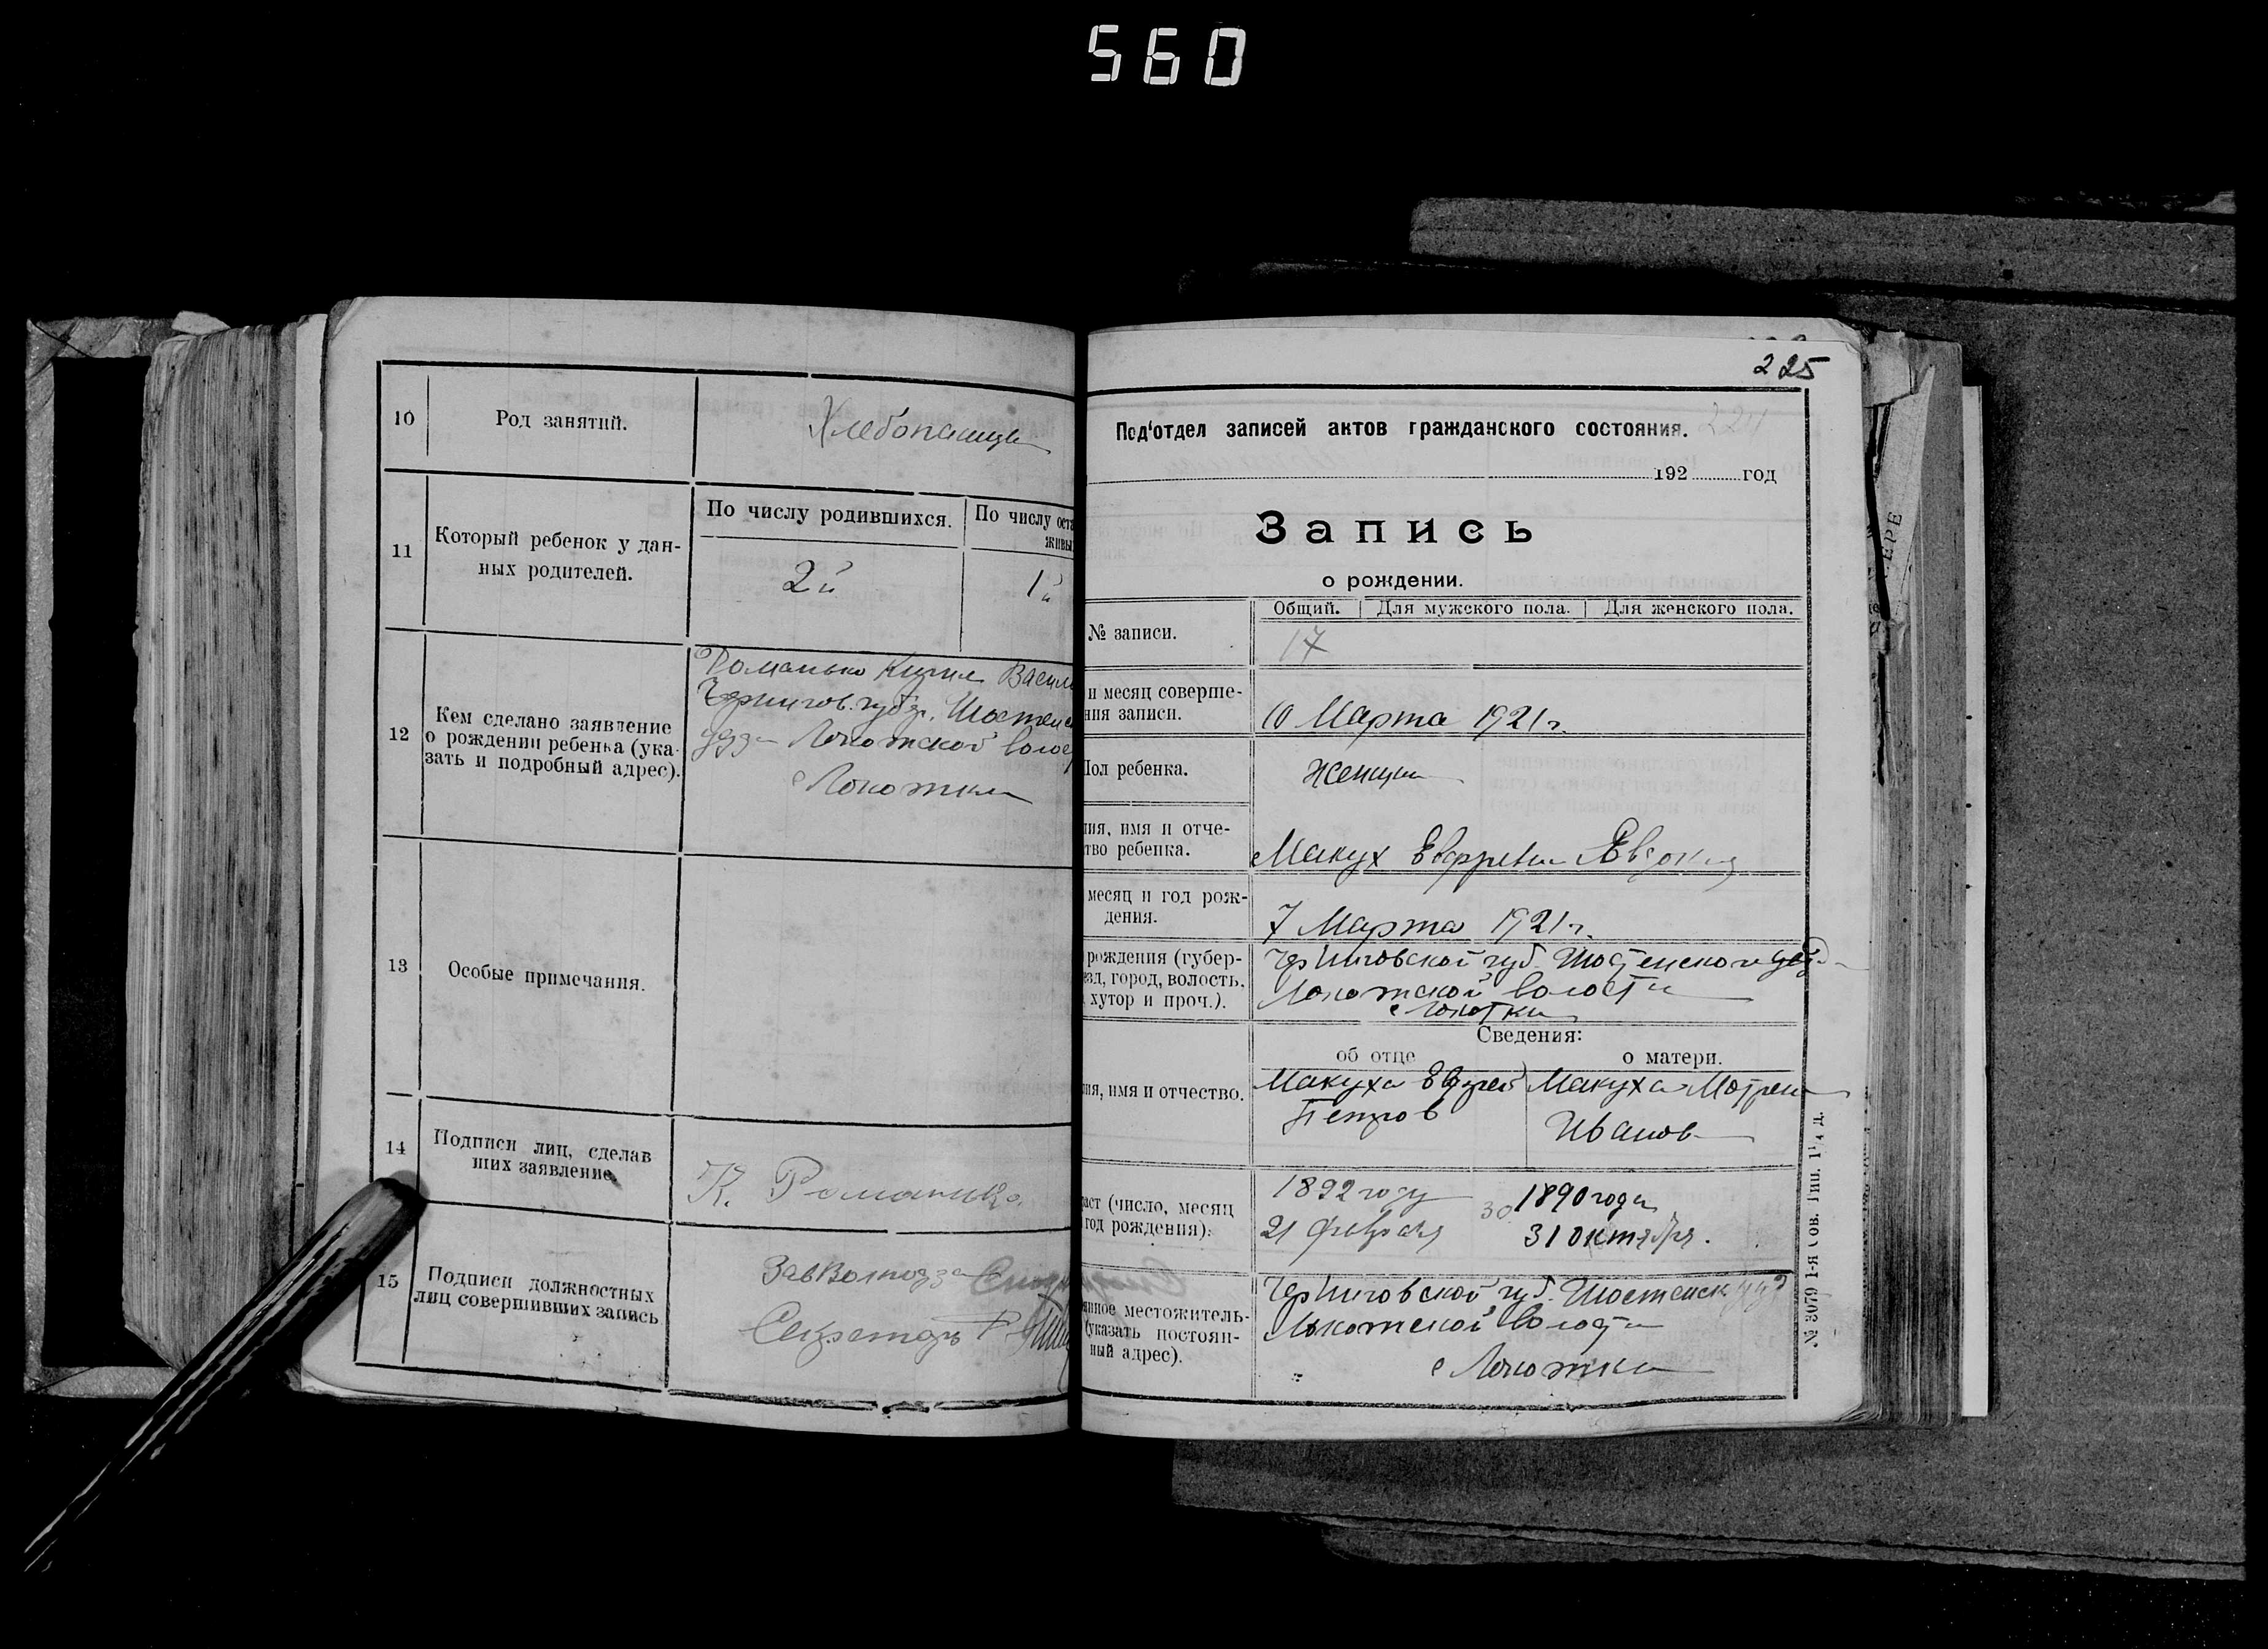 560
10
Род занятий.
Хлебопашцы
11
Который ребенок у дан-
ных родителей.
По числу родившихся.
По числу оста
живы
2й
1й
12
Кем сделано заявление
о рождении ребенка (ука-
зать и подробный адрес).
Романько Кирил Васил
Чернигов. губ., Шостенс
уезда Локотской волос
с Локотки
13
Особые примечания.
14
Подписи лиц, сделав
ших заявление.
К. Романько
15
Подписи должностных
лиц совершивших запись
Секретарь
225
224
Под'отдел записей актов гражданского состояния.
192 год
Запись
о рождении.
Общий. Для мужского пола. Для женского пола.
№ записи.
17
и месяц соверше-
ния записи.
10 Марта 1921 г.
Пол ребенка.
Женщин
ия, имя и отче-
тво ребенка.
Макух Явдокия
месяц и год рож-
дения.
7 Марта 1921 г.
рождения (губер-
езд, город, волость,
хутор и проч.).
Черниговской губ. Шостенского уезда
Локотской волости
с Локотки
Сведения:
об отце
о матери.
ия, имя и отчество.
Макуха
Петров
Макуха Мотрена
Иванов
аст (число, месяц
год рождения).
1892 году
21 февраля
30
1890 года
31 октября.
янное местожитель-
(указать постоян-
ный адрес).
Черниговской губ. Шостенск уезд
Локотской волости
с Локотки
№ 3079 1-я Сов. Тип. 1¼ д.